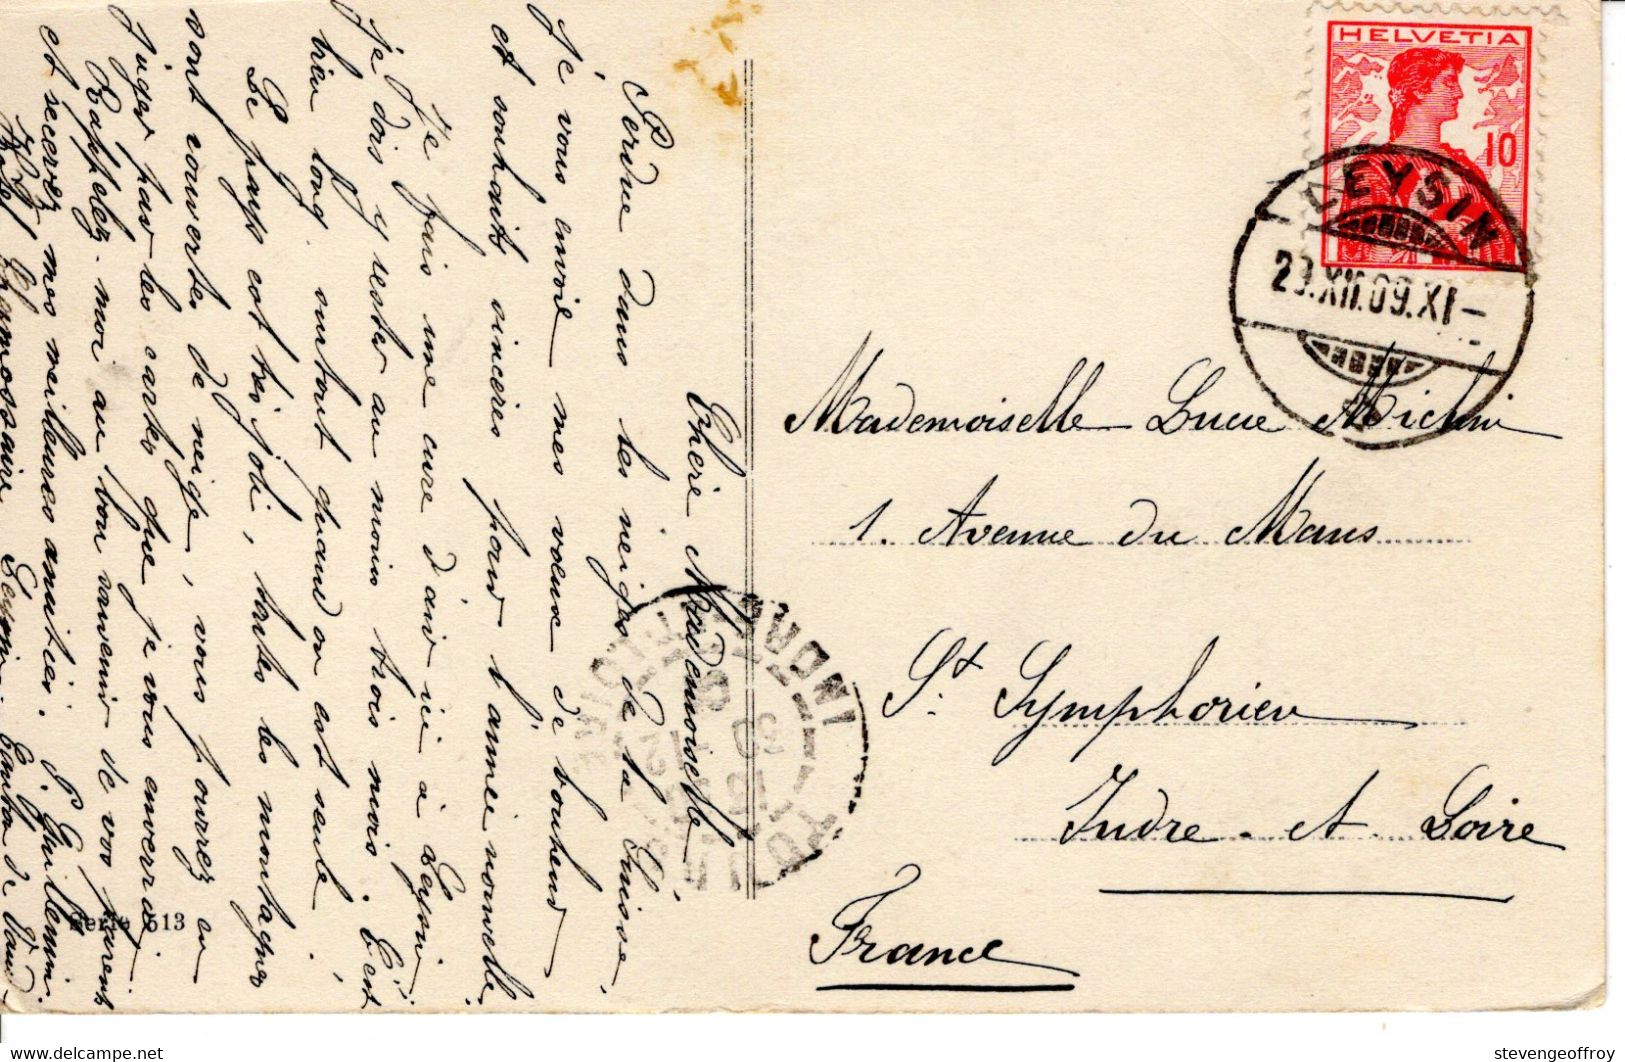 HELVETIA
10
LEYSIN
29.XII.09.XI—
Mademoiselle Lucie Michin
1. Avenue du Mans
St. Symphorien
Indre et Loire
France
INDRE-ET-LOIRE
Chère Mademoiselle,
Perdue dans les neiges de la Suisse,
je vous envoie mes vœux de bonheur
et souhaits sincères pour l'année nouvelle.
Je fais une cure d'air ici à Leysin;
je dois y rester au moins trois mois. C'est
bien long surtout quand on est seule!
Le pays est très joli, toutes les montagnes
sont couvertes de neige, vous pourrez en
juger par les cartes que je vous enverrai.
Rappelez-moi au bon souvenir de vos parents
et recevez mes meilleures amitiés. P. Guillemin.
Hôtel Chamossaire Leysin Canton de Vaud
Serie 513
www.delcampe.net
stevengeoffroy